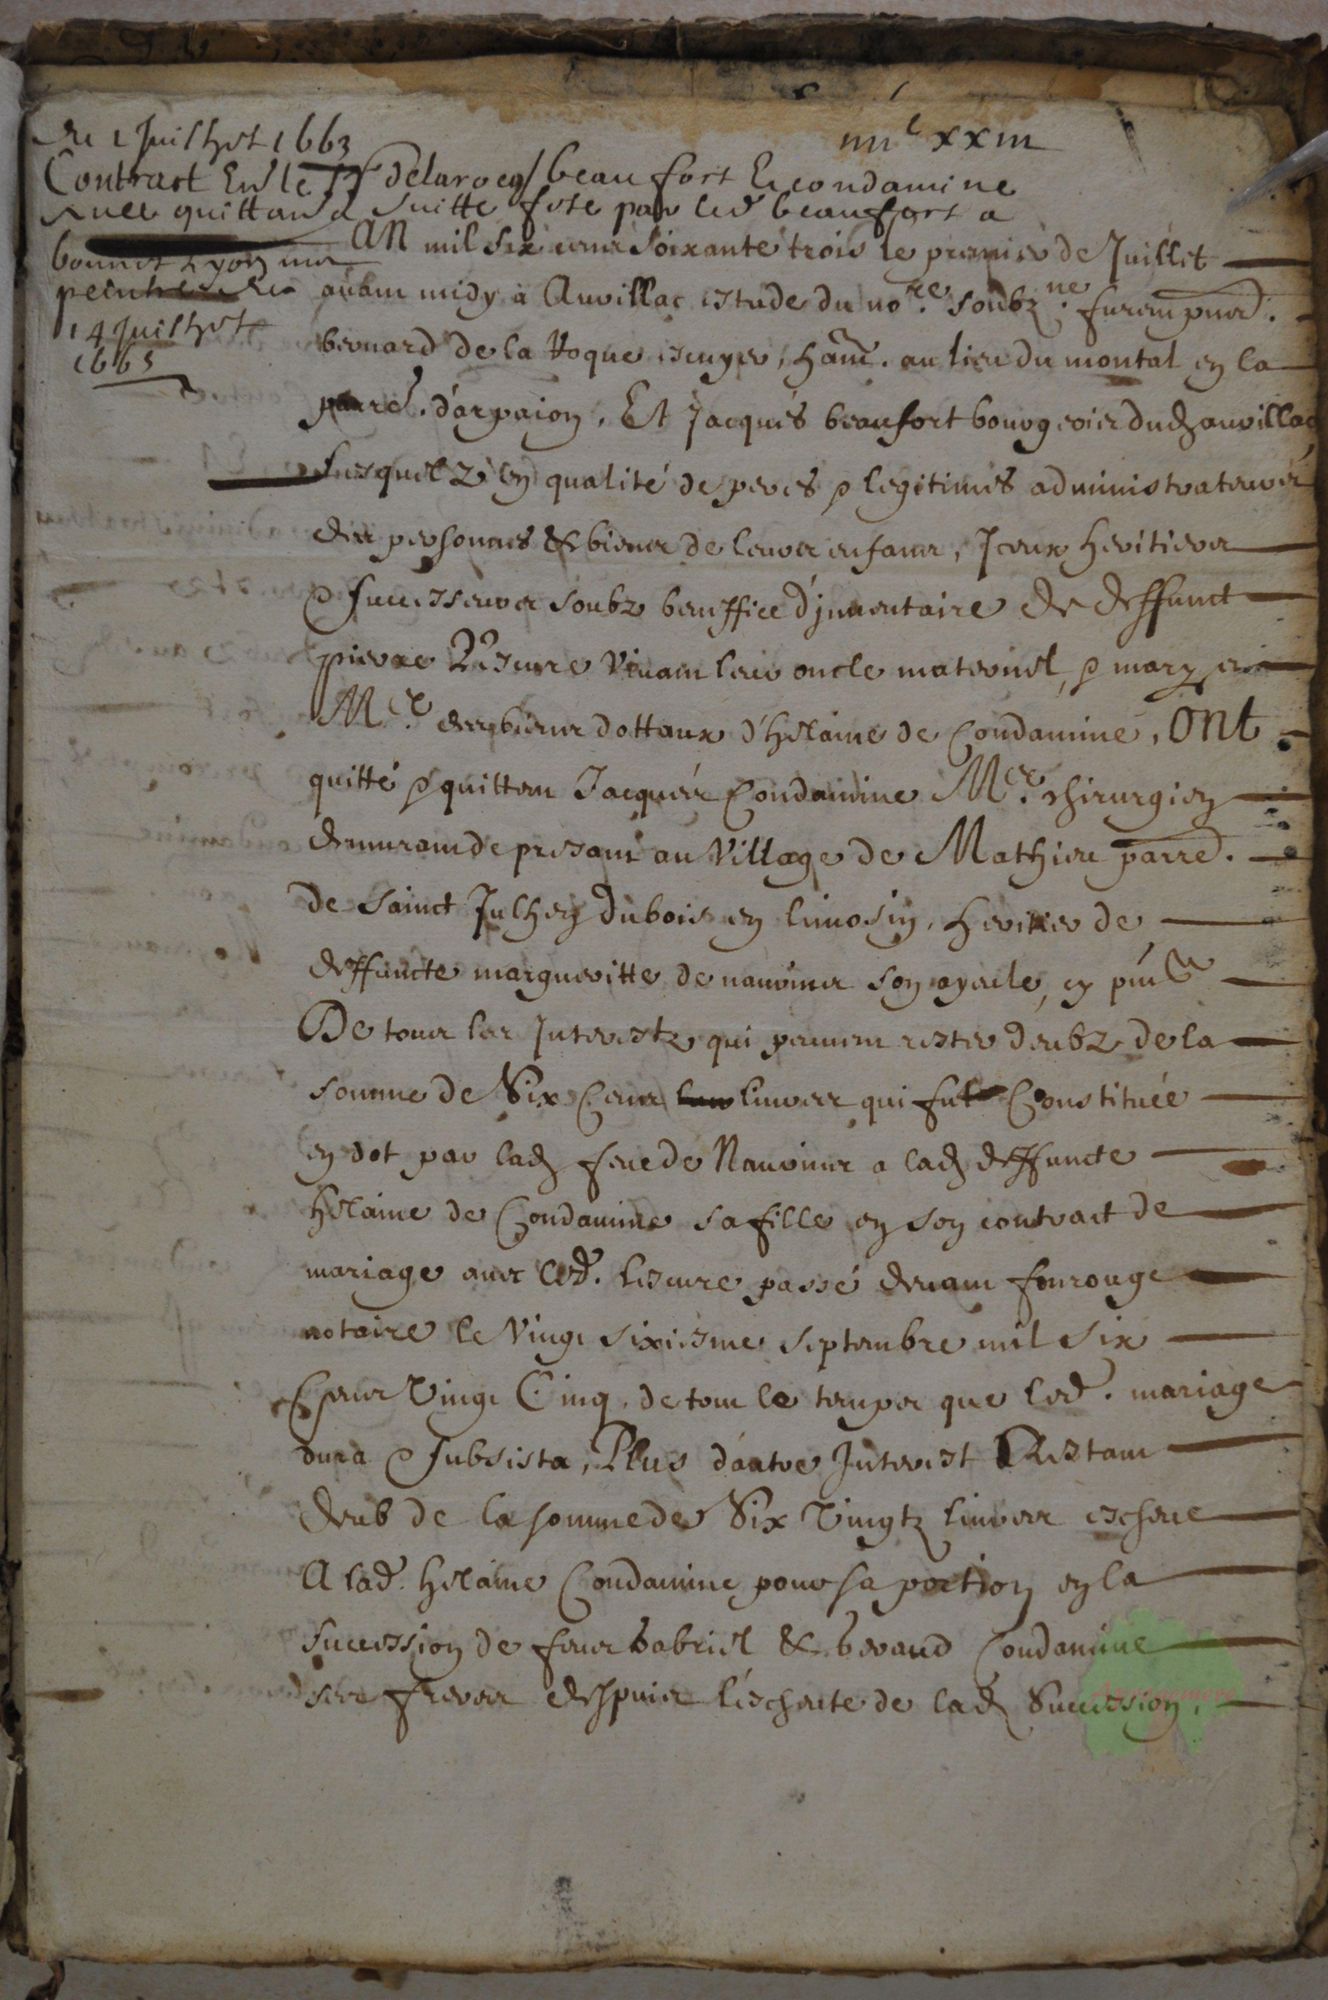 Du 1 Juilhet 1663
iiii^c xxiii
Contract Entre Sr Delarocq / beaufort Et condamine
Avec quittance suitte fete par led beaufort a
bonnet Lyon mre
peintre Du
14 Juilhet
1665
AN mil six cens soixante trois le premier de Juillet
avant midy a Auvillac estude du no.re soubz.ne furent pnts.
bernard de la Roque escuyer, hant. au lieu du montal en la
parre. d'arpaion, Et Jacques beaufort bourgeois dud auvillac
lesquelz en qualité de peres & legitimes administrateurs
des personnes & biens de leurs enfans, Iceux heritiers
& successeurs soubz beneffice d'inventaire de deffunct
pierre Lescure vivant leur oncle maternel, & mary et
M.re des biens dottaux d'helaine de Condamine, ONt
quitté & quittent Jacques Condamine M.re chirurgien
demurant de presant au village de Mathieu parre.
de sainct Julhen dubois en limosin, heritier de
deffuncte margueritte de nauvines son ayeule, cy pnt
De tous les Interestz qui peuvent rester deubz de la
somme de Six Cens livres qui fut Constituée
en dot par lad feue de Nauvines a lad deffuncte
Helaine de Condamine sa fille en son contract de
mariage avec led. lescure passé devant fourouge
notaire le vingt sixiesme septembre mil six
Cens vingt Cinq, de tout le temps que led. mariage
dura & subsista, Plus d'autre Interest Restant
deub de la somme de Six vingtz livres escheue
A lad. Helaine Condamine pour sa portion en la
succession de feus Gabriel & beraud Condamine
ses freres despuis l'escheute de lad succession,
Agenemore